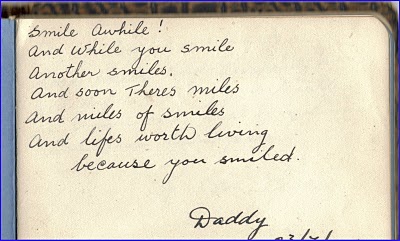 Smile Awhile!
And While you smile
Another smiles.
And soon Theres miles
And miles of smiles
And lifes worth living
because you smiled.
Daddy